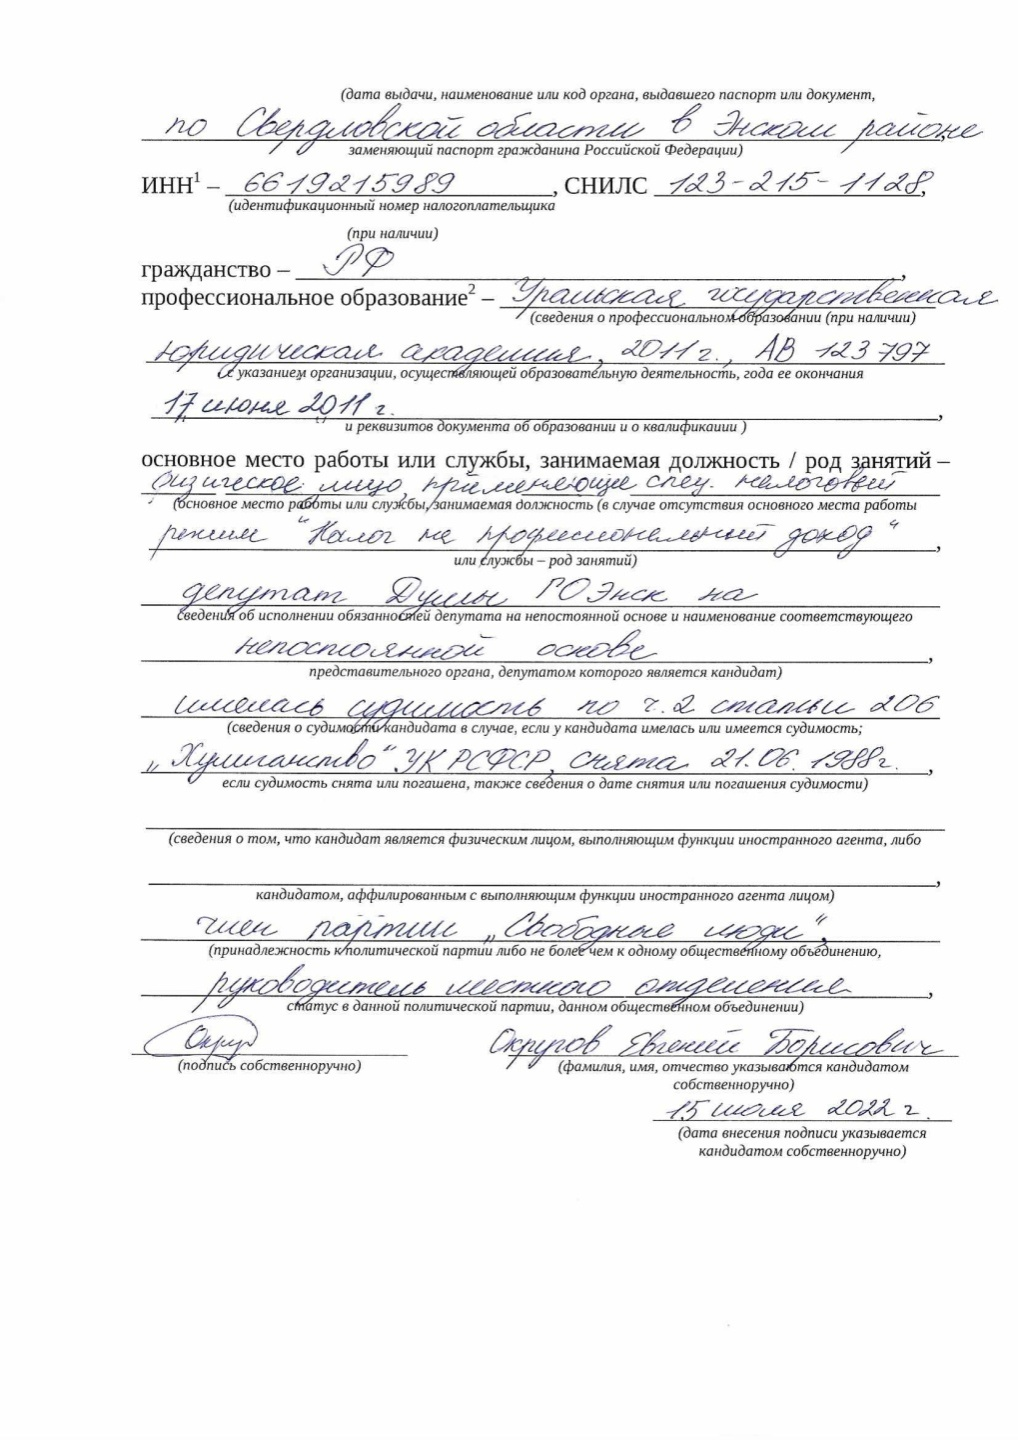 (дата выдачи, наименование или код органа, выдавшего паспорт или документ,
по Свердловской области в Энском районе,
заменяющий паспорт гражданина Российской Федерации)
ИНН1 – 6619215989, СНИЛС 123-215-1128,
(идентификационный номер налогоплательщика
(при наличии)
гражданство – РФ,
профессиональное образование2 – Уральская государственная
(сведения о профессиональном образовании (при наличии)
юридическая академия, 2011 г., АВ 123797
с указанием организации, осуществляющей образовательную деятельность, года ее окончания
17 июня 2011 г.,
и реквизитов документа об образовании и о квалификации )
основное место работы или службы, занимаемая должность / род занятий –
физическое лицо, применяющие спец. налоговый
(основное место работы или службы, занимаемая должность (в случае отсутствия основного места работы
режим "Налог на профессиональный доход",
или службы – род занятий)
депутат Думы ГО Энск на
сведения об исполнении обязанностей депутата на непостоянной основе и наименование соответствующего
непостоянной основе,
представительного органа, депутатом которого является кандидат)
имелась судимость по ч.2 статьи 206
(сведения о судимости кандидата в случае, если у кандидата имелась или имеется судимость;
„Хулиганство" УК РСФСР, снята 21.06.1988г.,
если судимость снята или погашена, также сведения о дате снятия или погашения судимости)
(сведения о том, что кандидат является физическим лицом, выполняющим функции иностранного агента, либо
,
кандидатом, аффилированным с выполняющим функции иностранного агента лицом)
член партии „Свободные люди",
(принадлежность к политической партии либо не более чем к одному общественному объединению,
руководитель местного отделения,
статус в данной политической партии, данном общественном объединении)
Округ Округов Евгений Борисович
(подпись собственноручно) (фамилия, имя, отчество указываются кандидатом
собственноручно)
15 июля 2022 г.
(дата внесения подписи указывается
кандидатом собственноручно)